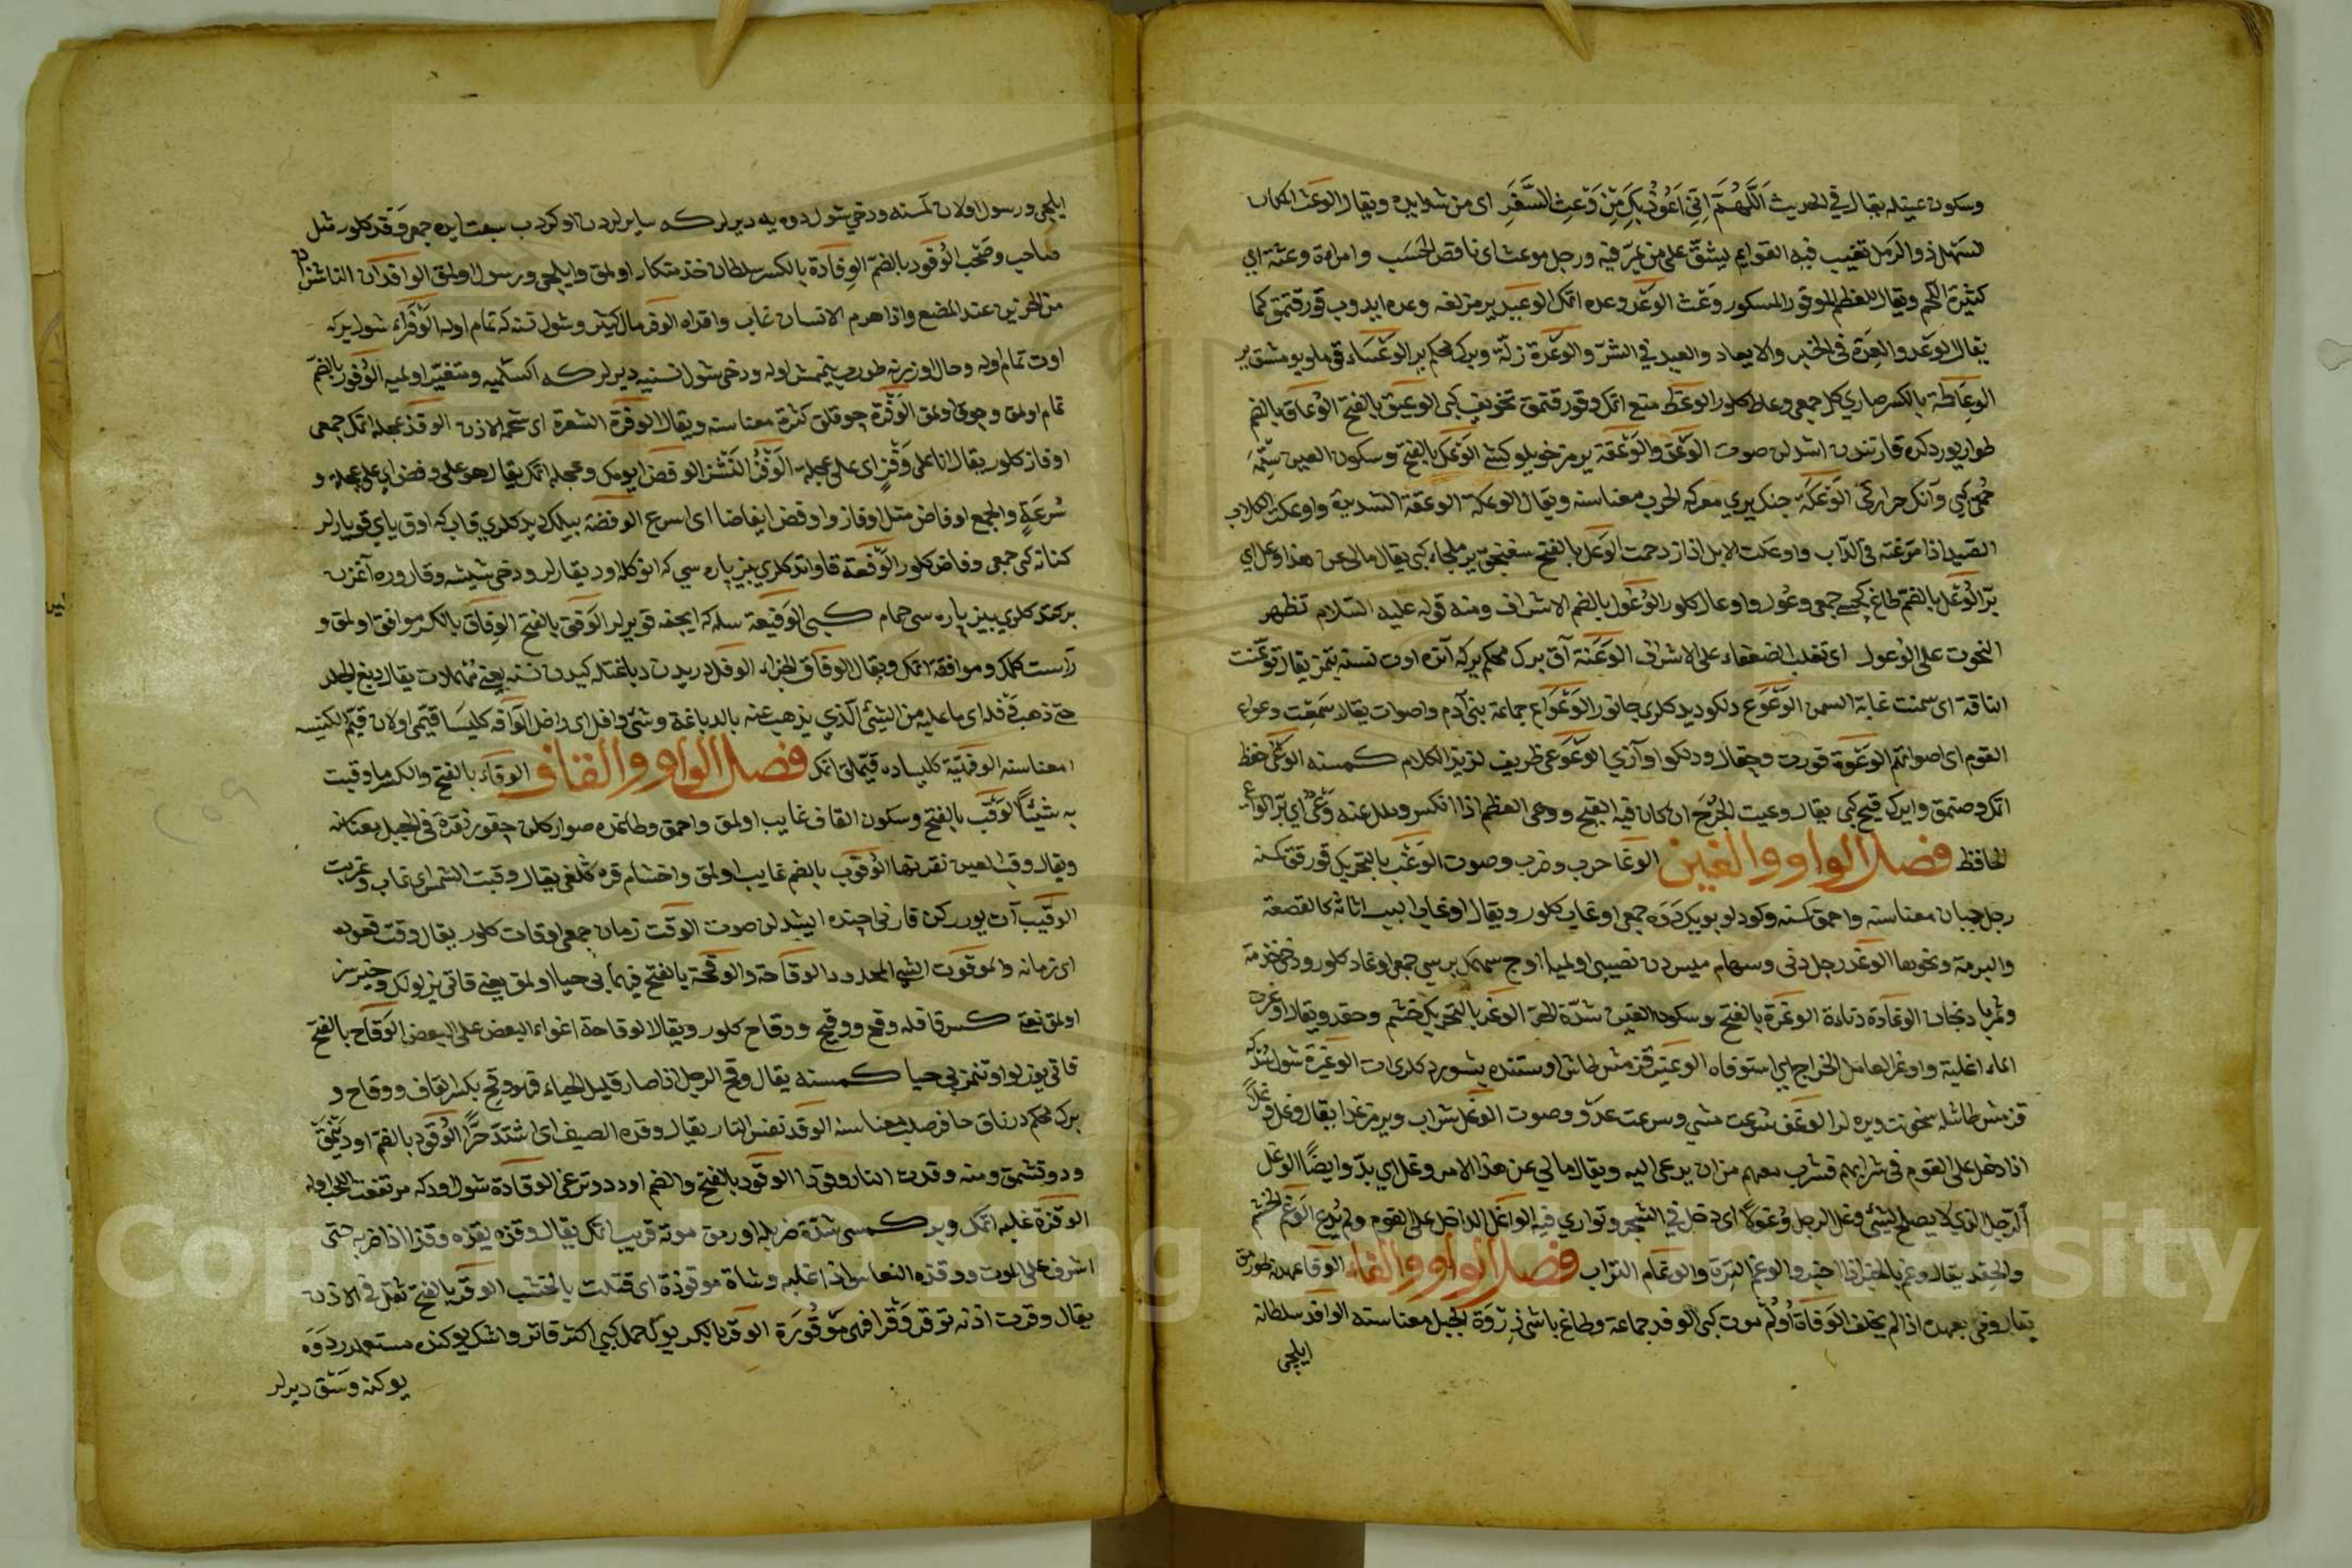 وسكون عينله يقال في الحديث اللهم اني اعوذ بك من وعث السفر اى من شدايده ويقال الوعث المكان
السهل ذو الرمل تغيب فيه القوايم يشق على من يمر فيه ورجل موعث اى ناقص الحسب وامراة وعثة اى
كثيرة اللحم ويقال للعظم الموقور المسكور وعث الوعد وعده اتمك الوعيد بر مزلغه وعده ايدوب قورقتمق كما
يقال الوعد والعدة في الخير والايعاد والعيد في الشر والوعرة زلة وبرك محكم ير الوعساء
الوعاظة بالكسر جمعى وعاظ كلور الوعظ متع اتمك وقورقتمق تخويف كبى الوعيق بالفتح الوعاق بالضم
طوار يوردكده قارنندن اشدلن صوت الوعق والوعقة ير مز خويلو كشى الوعك بالفتح وسكون العين ستمه
حمى كبى وآنك حرارتى الوعكة جنك يرى معركه الحرب معناسنه ويقال الوعكة الوعقة الشديدة واوعكت الكلاب
الصيد اذا مرغته في التراب واوعكت الابل اذا ازدحمت الوعل بالفتح سغنجق ير ملجاء كبى يقال مالى عن هذا وعل اى
بد الوعل بالضم طاغ كچيسى جمعى وعول واوعال كلور الوعول بالضم الاشراف ومنه قوله عليه السلام تظهر
التحوت على الوعول اى تغلب الضعفاء على الاشراف الوعنة آق برك محكم يركه آنده اوت نسنه بتمز يقال توعنت
الناقة اى سمنت غاية السمن الوعوع دلكو ديدكلرى جانور الوعواع جماعة بنى آدم واصوات يقال سمعت وعواع
القوم اى اصواتهم الوعوة قورت وچقال ودلكو اوازى الوعوعى ظريف لذيذ الكلام كمسنه الوعى حفظ
اتمك وصنمق وايرك قيح كبى يقال وعيت الجرح ان كان فيه القيح ووعى العظم اذا انكسر ومالى عنه وعى اى بد الواعى
الحافظ فصل الواو والغين الوغا حرب وضرب وصوت الوغب بالتحريك قورقق كسنه
رجل جبان معناسنه واحمق كسنه وكودلو بويك دوه جمعى اوغاب كلور ويقال اوغاب البيت اثاثه كالقصعة
والبرمة ونحوهما الوغد رجل دنى وسهام ميسردن نصيبى اولميا اوج سهمك برسى جمعى اوغاد كلور ودخى خذمة
وثمر بادنجان الوغادة دناءة الوغرة بالفتح وسكون الغين شدة الحر الوغر بالتحريك خشم وحقد ويقال اوغرت
الماء اغليته واوغر العامل الخراج اى استوفاه الوغير قزمش طاش اوستنده پشوردكلرى ات الوغيرة شول سودكه
قزمش طاشله سخونت ويره لر الوغف سرعت مشى وسرعت عدو وصوت الوغل شراب وير مز غدا يقال وغل وغلا
اذا دخل على القوم في شرابهم فشرب معهم من ان يدعى اليه ويقال مالى عن هذا الامر وغل اى بد وايضا الوغل
الرجل الذى لا يصلح لشئ وغل الرجل وغولا اى دخل في الشجر وتوارى فيه الواغل الداخل على القوم ولم يدع الوغم الخشم
والحقد يقال وغم بالخبر اذا اخبر والوغم الترة والوغام التراب فصل الواو والفاء الوفا عهدنه طورمق
يقال وفى بعهده اذا لم يخلف الوفاة اولم موت كبى الوفد جماعة وطاغ باشى ذروة الجبل معناسنه الوافد سلطانه
ايلچى
ايلچى ورسول اولان كمسنه ودخى شول دوه يه ديرلر كه سايرلردن اوكردب سبقت ايده جمعى وفد كلور مثل
صاحب وصحب الوفود بالضم الوفادة بالكسر سلطان خذمتكار اولمق وايلچى ورسول اولمق الوافدان الناشزان
من الخدين عند المضغ واذا هرم الانسان غاب وافداه الوفر مال كثير وشول نسنه كه تمام اوله الوفراء شول يركه
اوت تمام اوله وحال اوزرنه طورب يتمش اوله ودخى شول نسنيه ديرلر كه اكسلميه ومتغير اولميه الوفور بالضم
تمام اولمق وچوق اولمق الوفرة چوقلق كثرة معناسنه ويقال الوفرة الشعرة اى شحمة الاذن الوفز عجله اتمك جمعى
اوفاز كلور يقال انا على وفز اى على عجلة الوفز النشز الوفض ايومك وعجله اتمك يقال هو على وفض اى على عجلة و
سرعة والجمع اوفاض مثل اوفاز واوفض ايفاضا اى اسرع الوفضة بيلك ديدكلرى قاب كه اوق ياى قويارلر
كنانه كبى جمعى وفاض كلور الوفعة قاواتد كلرى بز پاره سى كه انوكله اود يقارلر ودخى شيشه وقاروره آغزن
بركدكلرى بز پاره سى صمام كبى الوفيعة سله كه ايچنه قويرلر الوفق بالفتح الوفاق بالكسر موافق اولمق و
راست كلمك وموافقة اتمك ويقال الوفاق الجزاء الوفل دريدن دباغتله كيدن نسنه يقال دبغ الجلد
حتى ذهب وفله اى ما عليه من الشئ الذى يذهب عنه بالدباغة وشئ وافل اى وافر الوافه كليسا قيمى اولان قيم الكنيسه
معناسنه الوفهية كليساده قيملق اتمك فصل الواو والقاف الوقاء بالفتح والكسر ما وقيت
به شيئا الوقب بالفتح وسكون القاف غايب اولمق واحمق وطاغده صو اركلن چقور نقرة في الجبل معناسنه
ويقال وقب العين نقرتها الوقوب بالضم غايب اولمق واخشام قره كلغى يقال وقبت الشمس اى غاب وغربت
الوقيب آت يورركن قارنى ايچنده ايشيدلن صوت الوقت زمان جمعى اوقات كلور يقال وقت قعوده
اى زمانه والموقوت الشئ المحدود الوقاحة والوقحة بالفتح فيهما بى حيا اولمق يعنى قاتى يزلولك وخير سز
اولمق نعته كسر قافله وقح ووقيح ووقاح كلور ويقال الوقاحة اغواء البعض على البعض الوقاح بالفتح
قاتى يوزلو اوتنمز بى حيا كمسنه يقال وقح الرجل اذا صار قليل الحياء فهو وقح بكسر القاف ووقاح و
برك محكم درناق حافر صلب معناسنه الوقد نفس النار يقال وقده الصيف اى اشتد حرا الوقود بالضم اود يقمق
ودوتشمق ومنه وقدت النار وقودا الوقود بالفتح والضم اود دوترغى الوقادة شول اودكه مرتفعت اللهب اوله
الوقذة غلبه اتمك وبر كمسى شدة ضربله اورمق موته قريب اتمك يقال وقذه يقذه وقذا اذا ضربه حتى
اشرف على الموت ووقذه النعاس اذا غلبه وشاة موقوذة اى قتلت بالخشب الوقر بالفتح ثقل في الاذن
يقال وقرت اذنه توقر وقرا فهى موقورة الوقر بالكسر يوك حمل كبى اكثر قاتر واشك يوكنده مستعملدر دوه
يوكنه وسق ديرلر